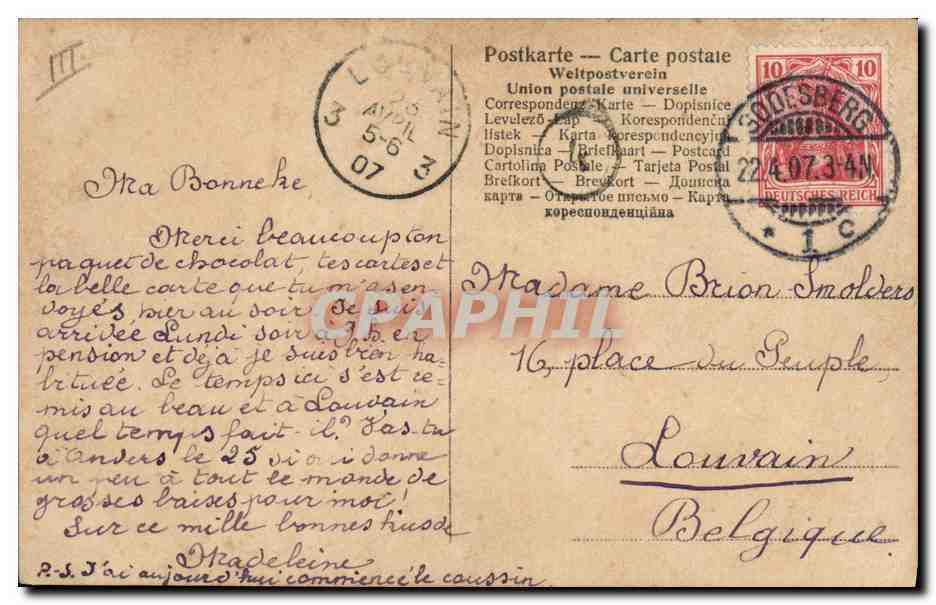 III
Postkarte — Carte postale
Weltpostverein
Union postale universelle
Correspondenz-Karte — Dopisnice
Levelező-Lap — Korespondenční
lístek — Karta korespondencyjna
Dopisnica — Briefkaart — Postcard
Cartolina Postale — Tarjeta Postal
Brefkort — Brevkort — Дописна
карта — Открытое письмо — Карта
кореспонденційна
10 10
DEUTSCHES REICH
GODESBERG
22.4.07.3-4N.
* 1 c
LOUVAIN
23
AVRIL
5-6
07
3 3
Ma Bonneke
Merci beaucoup ton
paquet de chocolat, tes cartes et
la belle carte que tu m'as en
voyés hier au soir. Je suis
arrivée Lundi soir en
pension et déjà je suis bien ha-
bituée. Le temps ici s'est re-
mis au beau et à Louvain
quel temps fait-il? Vas-tu
à Anvers le 25 si oui donne
un peu à tout le monde de
grosses baises pour moi!
Sur ce mille bonnes de
Madeleine
P.-S. J'ai aujourd'hui commencé le coussin.
Madame Brion Smolders
16, place du Peuple,
Louvain
Belgique.
CPAPHIL